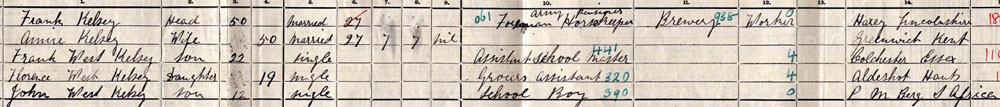 1. 2. 3. 4. 5. 6. 7. 8. 9. 10. 11. 12. 13. 14.
Frank Kelsey Head 50 Married 27 061 Foreman Army Pensioner Horsekeeper Brewery 938 Worker 0 Haxey Lincolnshire 18
Annie Kelsey Wife 50 Married 27 7 7 nil Greenwich Kent
Frank West Kelsey son 22 single Assistant School Master 441 4 Colchester Essex 110
Florence West Kelsey Daughter 19 single Grocers Assistant 320 4 Aldershot Hants 1
John West Kelsey son 12 single School Boy 390 0 P M Berg S Africa